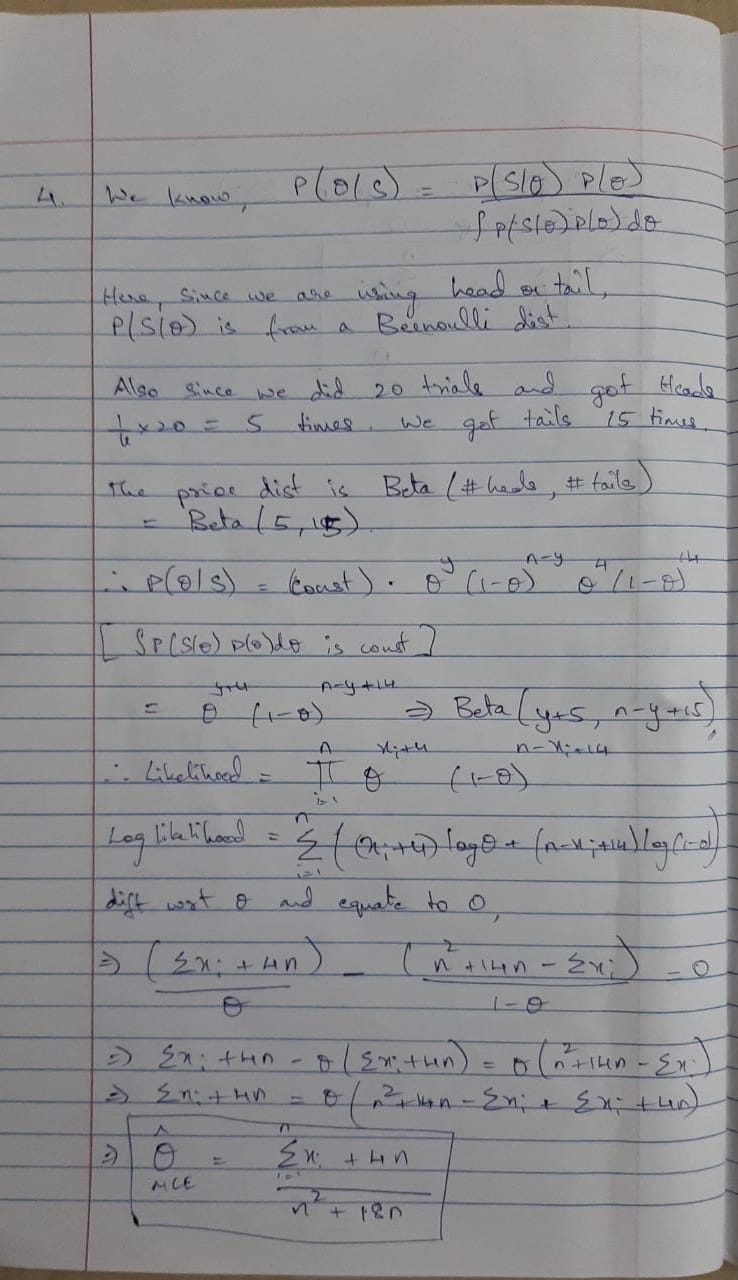 4. We know, P(θ|S) = P(S|θ) P(θ)
∫ P(S|θ) P(θ) dθ
Here, since we are using head or tail,
P(S|θ) is from a Beenoulli dist.
Also since we did 20 trials and got Heads
1/4 × 20 = 5 times. We got tails 15 times.
The prior dist is Beta (# heads, # tails)
= Beta (5, 15).
∴ P(θ|S) = (const) . θ^y (1-θ)^(n-y) θ^4 (1-θ)^14
[ ∫P(S|θ) P(θ)dθ is const ]
= θ^(y+4) (1-θ)^(n-y+14) ⇒ Beta (y+5, n-y+15),
∴ Likelihood = ∏_{i=1}^{n} θ^(x_i+4) (1-θ)^(n-x_i+14)
Log likelihood = Σ_{i=1}^{n} ( (x_i+4) log θ + (n-x_i+14) log(1-θ)
diff wrt θ and equate to 0,
⇒ (Σx_i + 4n) / θ - (n² + 14n - Σx_i) / 1-θ = 0
⇒ Σx_i + 4n - θ(Σx_i + 4n) = θ(n² + 14n - Σx_i)
⇒ Σx_i + 4n = θ(n² + 14n - Σx_i + Σx_i + 4n)
⇒ θ̂_MLE = Σ_{i=1}^{n} x_i + 4n / n² + 18n